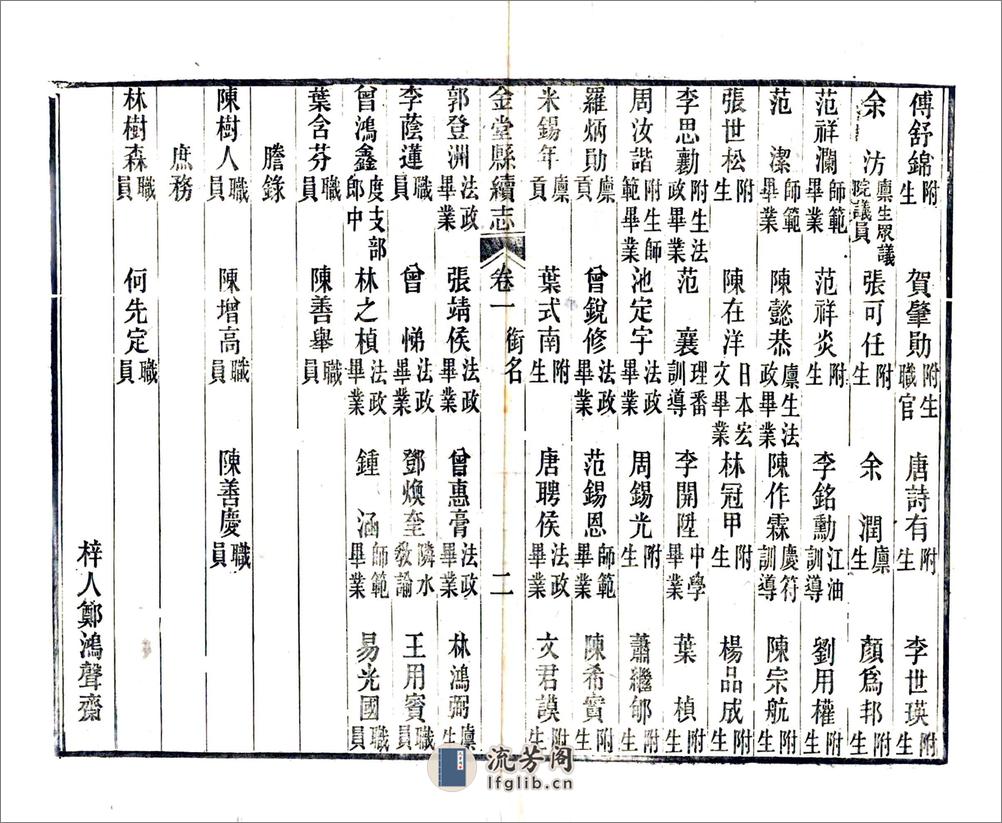 傅舒錦附生 賀肇勛附生職官 唐詩有附生 李世瑛附生
余汸廩生眾議院議員 張可任附生 余潤廩生 顏爲邦附生
范祥瀾師範畢業 范祥炎附生 李銘勳江油訓導 劉用權附生
范潔師範畢業 陳懿恭廩生法政畢業 陳作霖慶符訓導 陳宗航附生
張世松附生 陳在洋日本宏文畢業 林冠甲附生 楊品成附生
李思勷附生法政畢業 范襄理番訓導 李開陞中學畢業 葉楨附生
周汝諧附生師範畢業 池定宇法政畢業 周錫光附生 蕭繼邰附生
羅炳勛廩貢 曾銳修法政畢業 范錫恩師範畢業 陳希賓附生
米錫年廩貢 葉式南附生 唐聘侯法政畢業 文君謨附生
金堂縣續志 卷一 銜名 二
郭登洲法政畢業 張靖侯法政畢業 曾惠膏法政畢業 林鴻弼廩生
李蔭蓮職員 曾悌法政畢業 鄧煥奎隣水教諭 王用賓職員
曾鴻鑫度支部郎中 林之楨法政畢業 鍾涵師範畢業 易光國職員
葉含芬 陳善舉職員
謄錄
陳樹人職員 陳增高職員 陳善慶職員
庶務
林樹森職員 何先定職員
梓人鄭鴻聲齋
流芳阁
lfglib.cn